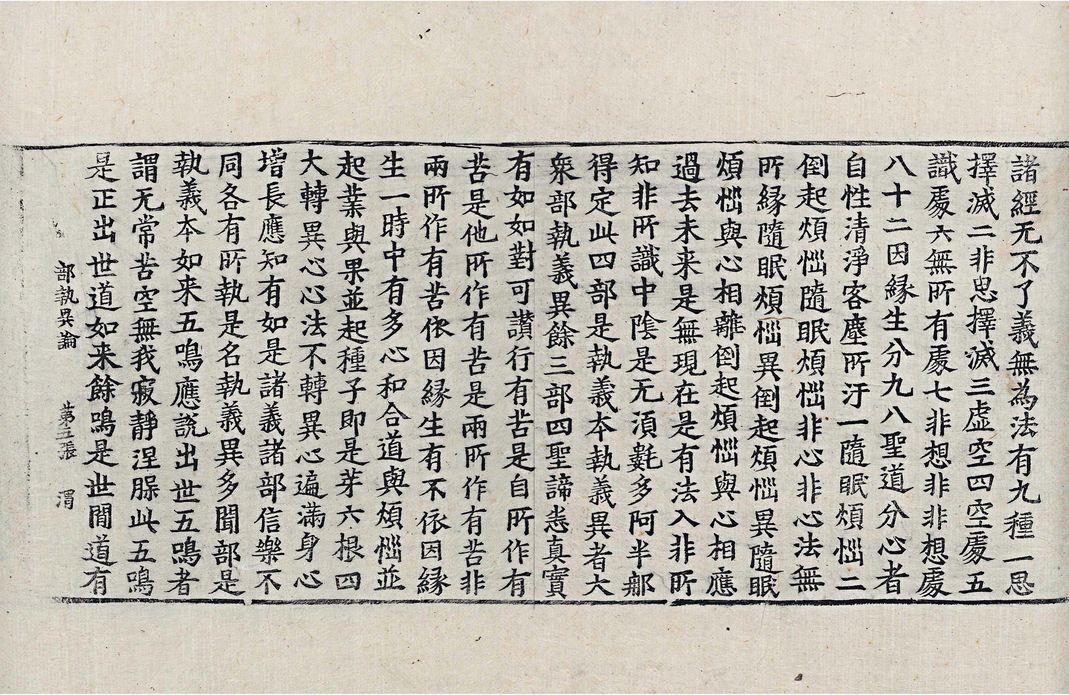 諸經无不了義無為法有九種一思
擇滅二非思擇滅三虛空四空處五
識處六無所有處七非想非非想處
八十二因緣生分九八聖道分心者
自性清淨客塵所汙一隨眠煩惱二
倒起煩惱隨眠煩惱非心非心法無
所緣隨眠煩惱異倒起煩惱異隨眠
煩惱與心相離倒起煩惱與心相應
過去未来是無現在是有法入非所
知非所識中陰是无須氀多阿半那
得定此四部是執義本執義異者大
衆部執義異餘三部四聖諦悉真實
有如如對可讃行有苦是自所作有
苦是他所作有苦是兩所作有苦非
兩所作有苦依因緣生有不依因緣
生一時中有多心和合道與煩惱並
起業與果並起種子即是芽六根四
大轉異心心法不轉異心遍滿身心
增長應知有如是諸義諸部信樂不
同各有所執是名執義異多聞部是
執義本如来五鳴應說出世五鳴者
謂无常苦空無我寂靜涅槃此五鳴
是正出世道如来餘鳴是世間道有
部執異論 第五張 渭